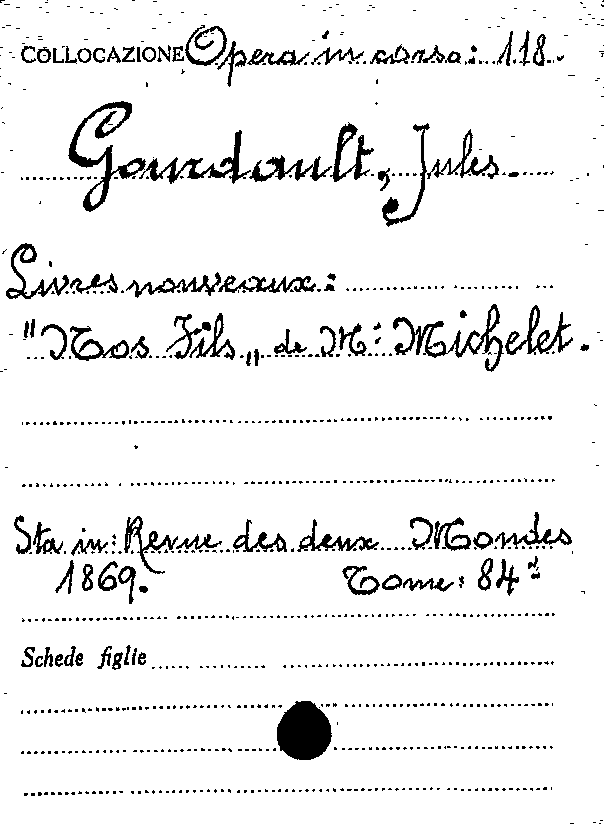 COLLOCAZIONE Opera in corso: 118.
Gourdault, Jules.
Livres nouveaux:
"Nos Fils„ de M: Michelet.
Sta in: Revue des deux Mondes
1869. Tome: 84
Schede figlie